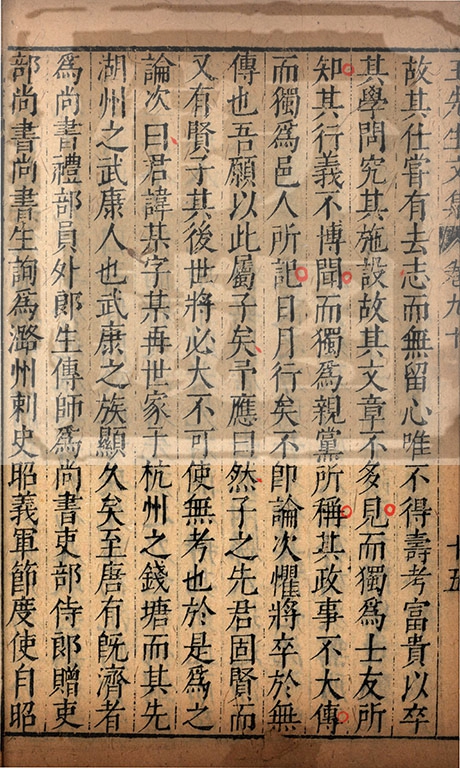 先生文集 卷九十 十五
故其仕嘗有去志而無留心唯不得壽考富貴以卒
其學問究其施設故其文章不多見而獨爲士友所
知其行義不博聞而獨爲親黨所稱其政事不大傳
而獨爲邑人所記日月行矣不即論次懼將卒於無
傳也吾願以此屬子矣予應曰然子之先君固賢而
又有賢子其後世將必大不可使無考也於是爲之
論次曰君諱某字某再世家于杭州之錢塘而其先
湖州之武康人也武康之族顯久矣至唐有旣濟者
爲尚書禮部員外郎生傳師爲尚書吏部侍郎贈吏
部尚書尚書生詢爲潞州刺史昭義軍節度使自昭